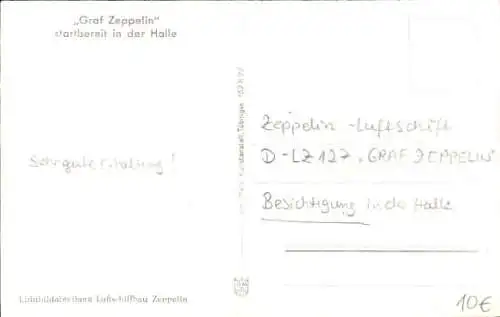 „Graf Zeppelin"
startbereit in der Halle
Sehr gute Erhaltung!
Kunstanstalt, Tübingen
Zeppelin-Luftschiff
D-LZ 127 „GRAF ZEPPELIN"
Besichtigung in der Halle
Luftschiffbau Zeppelin
10€